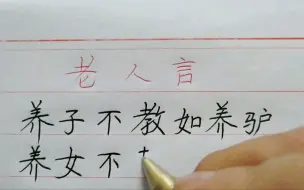 老人言
养子不教如养驴
养女不